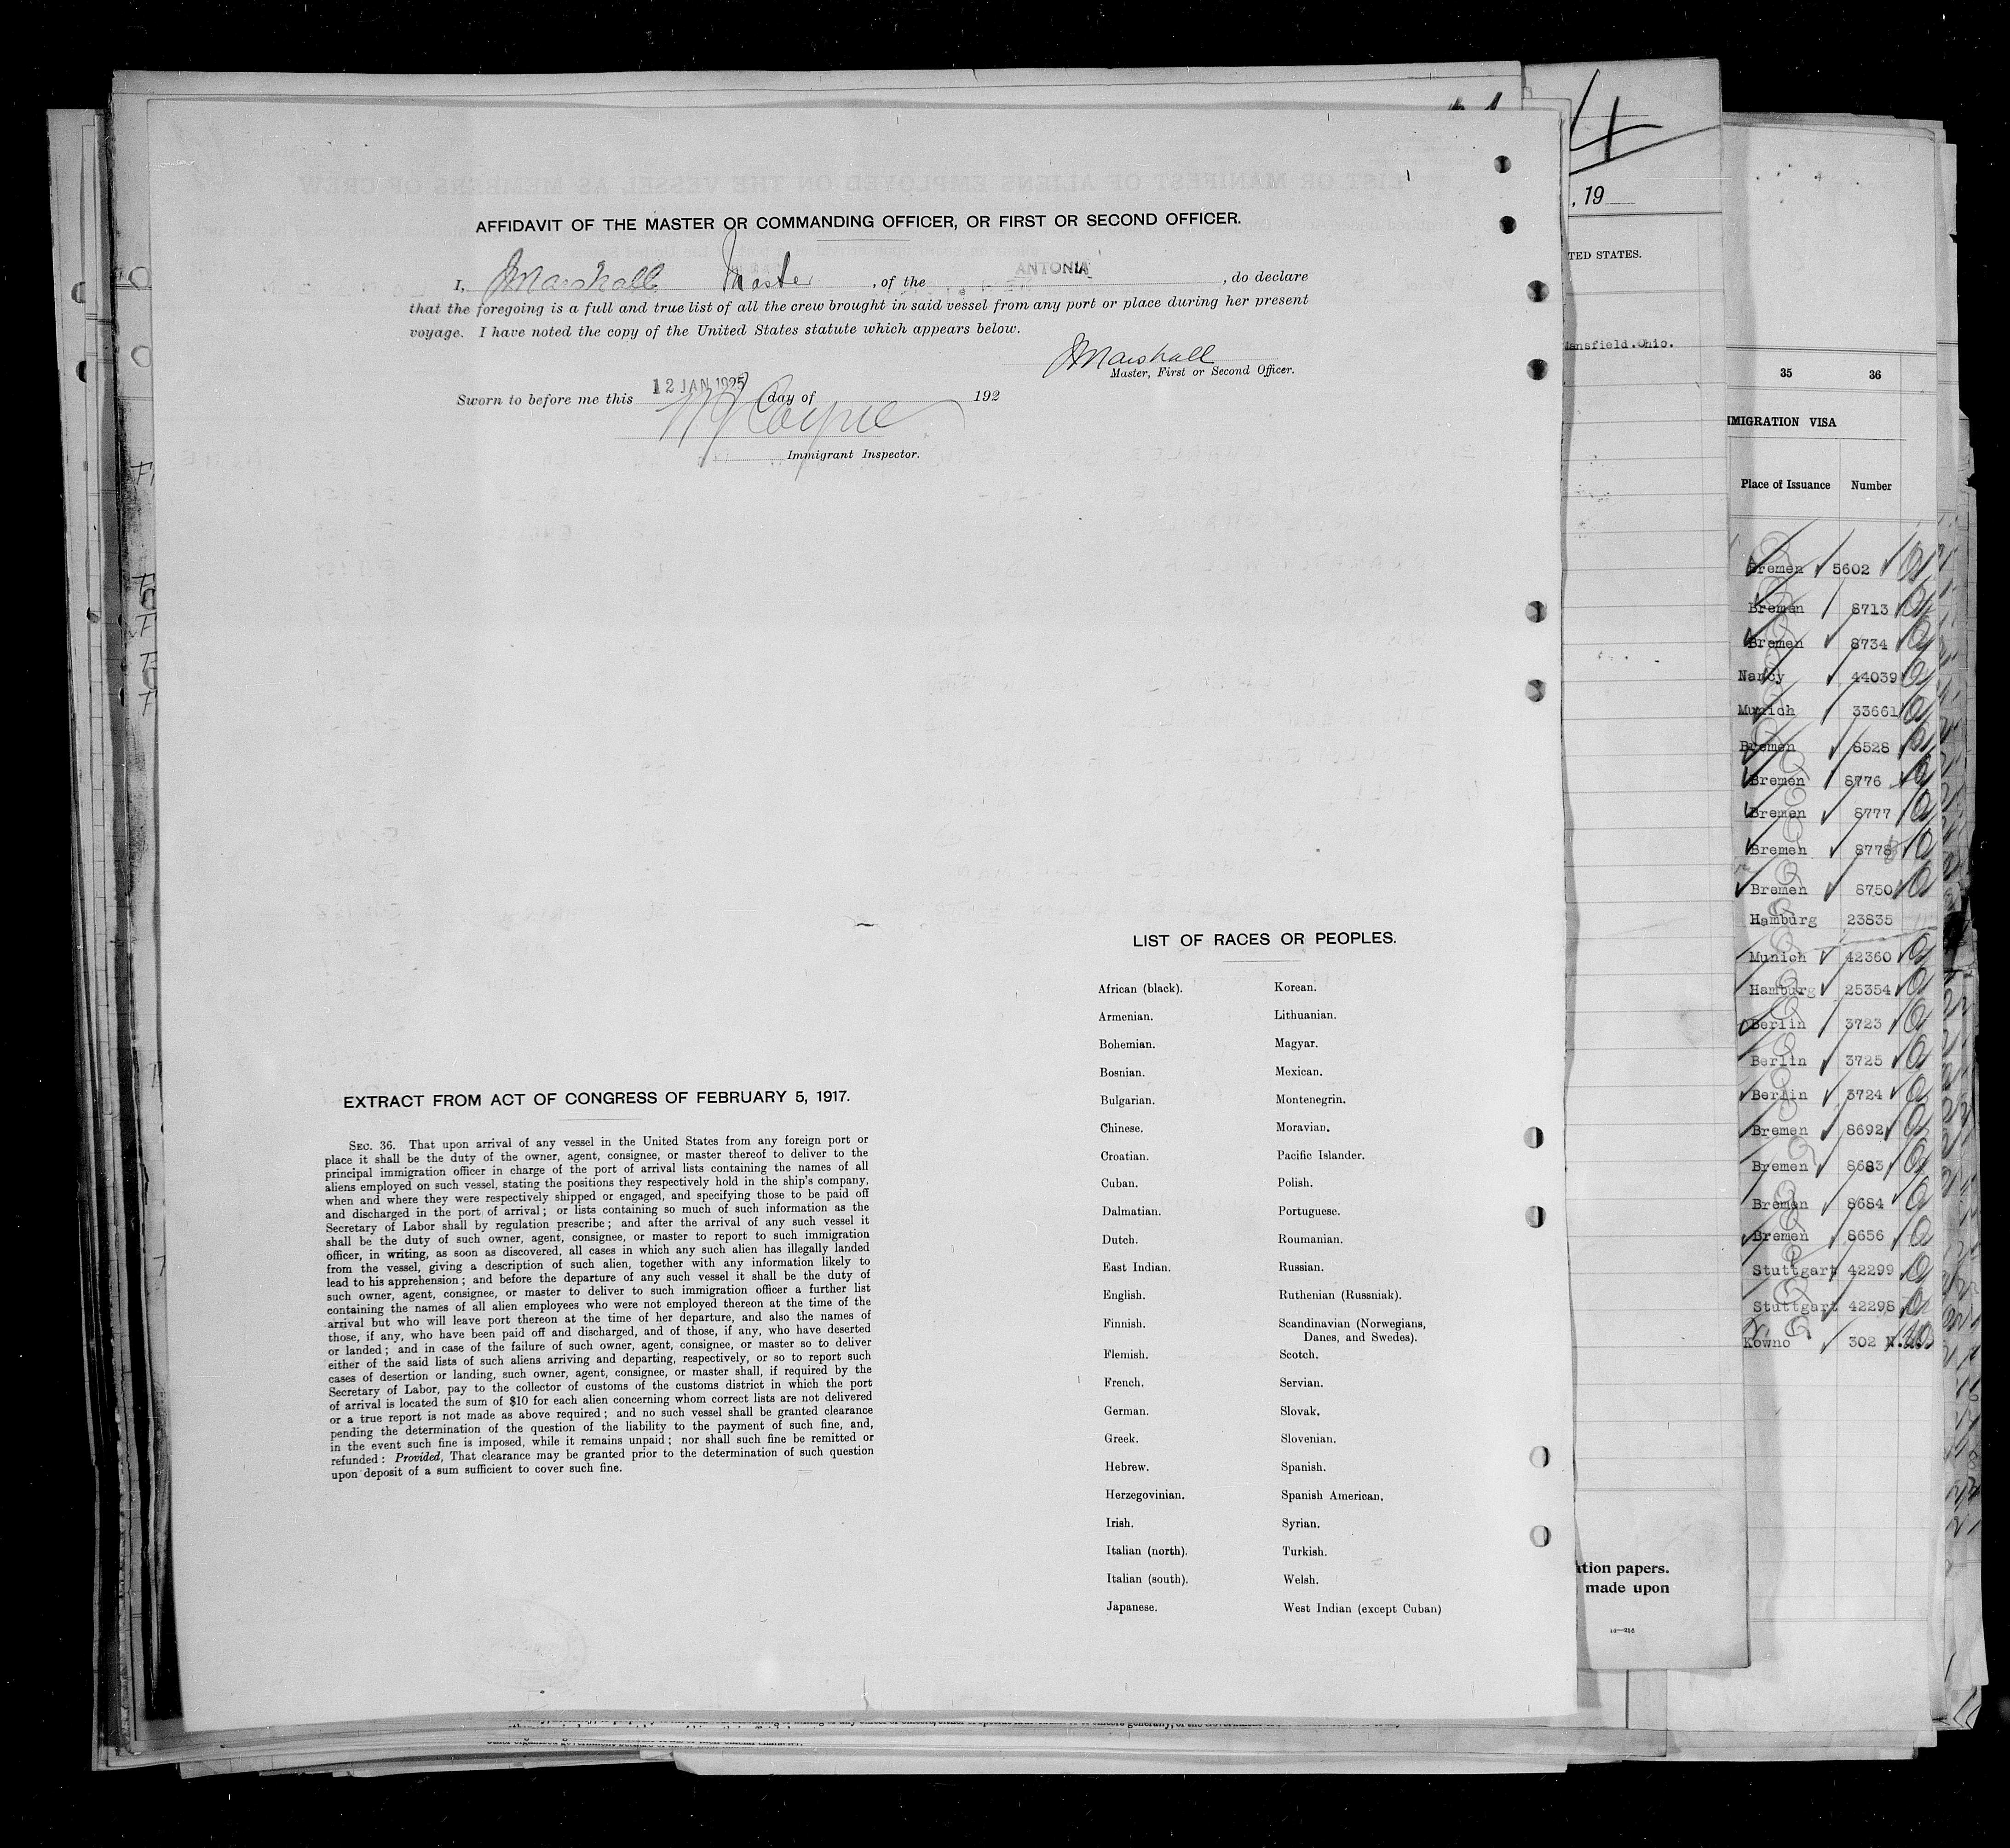 AFFIDAVIT OF THE MASTER OR COMMANDING OFFICER, OR FIRST OR SECOND OFFICER.
I, J Marshall Master, of the ANTONIA, do declare
that the foregoing is a full and true list of all the crew brought in said vessel from any port or place during her present
voyage. I have noted the copy of the United States statute which appears below.
J Marshall
Master, First or Second Officer.
Sworn to before me this 12 JAN 1925 day of 192
Coyne
Immigrant Inspector.
EXTRACT FROM ACT OF CONGRESS OF FEBRUARY 5, 1917.
SEC. 36. That upon arrival of any vessel in the United States from any foreign port or
place it shall be the duty of the owner, agent, consignee, or master thereof to deliver to the
principal immigration officer in charge of the port of arrival lists containing the names of all
aliens employed on such vessel, stating the positions they respectively hold in the ship's company,
when and where they were respectively shipped or engaged, and specifying those to be paid off
and discharged in the port of arrival; or lists containing so much of such information as the
Secretary of Labor shall by regulation prescribe; and after the arrival of any such vessel it
shall be the duty of such owner, agent, consignee, or master to report to such immigration
officer, in writing, as soon as discovered, all cases in which any such alien has illegally landed
from the vessel, giving a description of such alien, together with any information likely to
lead to his apprehension; and before the departure of any such vessel it shall be the duty of
such owner, agent, consignee, or master to deliver to such immigration officer a further list
containing the names of all alien employees who were not employed thereon at the time of the
arrival but who will leave port thereon at the time of her departure, and also the names of
those, if any, who have been paid off and discharged, and of those, if any, who have deserted
or landed; and in case of the failure of such owner, agent, consignee, or master so to deliver
either of the said lists of such aliens arriving and departing, respectively, or so to report such
cases of desertion or landing, such owner, agent, consignee, or master shall, if required by the
Secretary of Labor, pay to the collector of customs of the customs district in which the port
of arrival is located the sum of $10 for each alien concerning whom correct lists are not delivered
or a true report is not made as above required; and no such vessel shall be granted clearance
pending the determination of the question of the liability to the payment of such fine, and,
in the event such fine is imposed, while it remains unpaid; nor shall such fine be remitted or
refunded: Provided, That clearance may be granted prior to the determination of such question
upon deposit of a sum sufficient to cover such fine.
LIST OF RACES OR PEOPLES.
African (black).
Armenian.
Bohemian.
Bosnian.
Bulgarian.
Chinese.
Croatian.
Cuban.
Dalmatian.
Dutch.
East Indian.
English.
Finnish.
Flemish.
French.
German.
Greek.
Hebrew.
Herzegovinian.
Irish.
Italian (north).
Italian (south).
Japanese.
Korean.
Lithuanian.
Magyar.
Mexican.
Montenegrin.
Moravian.
Pacific Islander.
Polish.
Portuguese.
Roumanian.
Russian.
Ruthenian (Russniak).
Scandinavian (Norwegians,
Danes, and Swedes).
Scotch.
Servian.
Slovak.
Slovenian.
Spanish.
Spanish American.
Syrian.
Turkish.
Welsh.
West Indian (except Cuban)
4
, 19
TED STATES.
Mansfield.Ohio.
tion papers.
made upon
35 36
IMMIGRATION VISA
Place of Issuance Number
Bremen 5602
Bremen 8713
Bremen 8734
Nancy 44039
Munich 33661
Bremen 8528
Bremen 8776
Bremen 8777
Bremen 8778
Bremen 8750
Hamburg 23835
Munich 42360
Hamburg 25354
Berlin 3723
Berlin 3725
Berlin 3724
Bremen 8692
Bremen 8683
Bremen 8684
Bremen 8656
Stuttgart 42299
Stuttgart 42298
Kowno 302